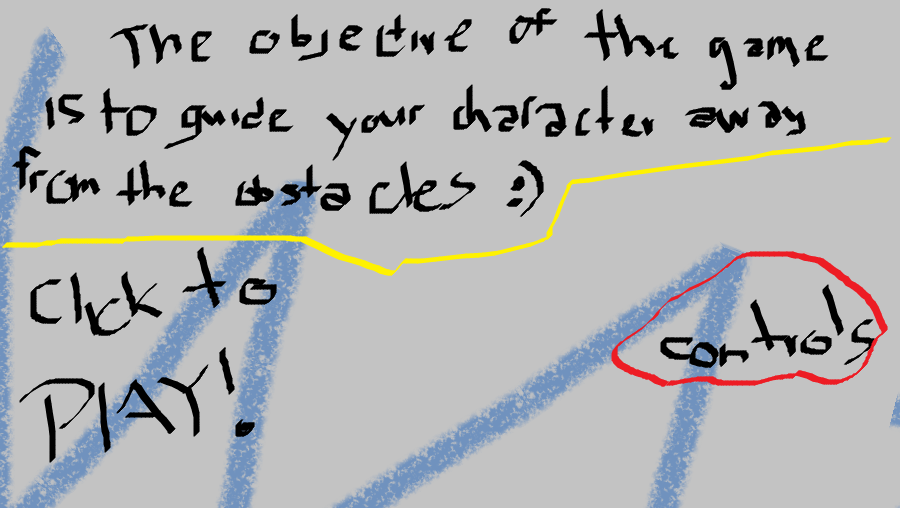 The objective of the game
is to guide your character away
from the obstacles :)
Click to
PLAY!
controls